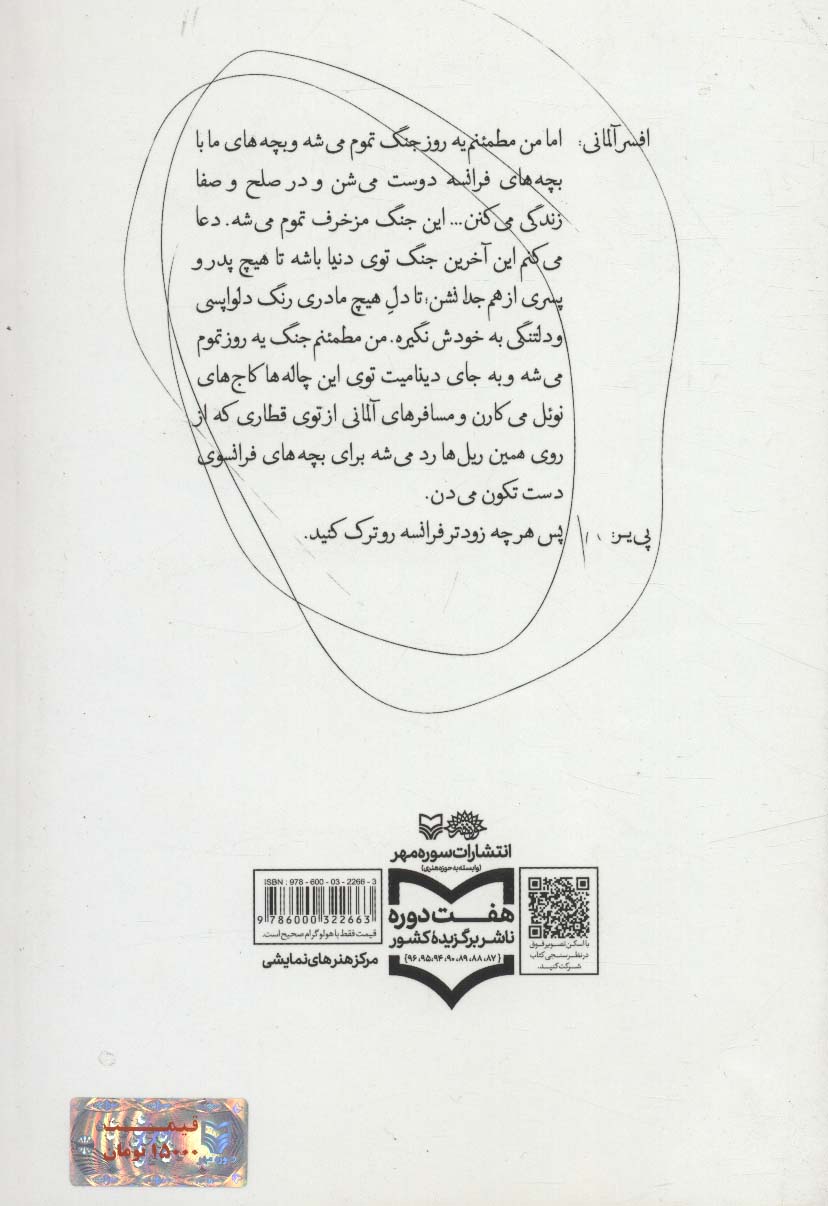 افسر آلمانی: اما من مطمئنم یه روز جنگ تموم می‌شه و بچه‌های ما با
بچه‌های فرانسه دوست می‌شن و در صلح و صفا
زندگی می‌کنن... این جنگ مزخرف تموم می‌شه. دعا
می‌کنم این آخرین جنگ توی دنیا باشه تا هیچ پدر و
پسری از هم جدا نشن؛ تا دلِ هیچ مادری رنگ دلواپسی
و دلتنگی به خودش نگیره. من مطمئنم جنگ یه روز تموم
می‌شه و به جای دینامیت توی این چاله‌ها کاج‌های
نوئل می‌کارن و مسافرهای آلمانی از توی قطاری که از
روی همین ریل‌ها رد می‌شه برای بچه‌های فرانسوی
دست تکون می‌دن.
پی‌یر: پس هر چه زودتر فرانسه رو ترک کنید.
انتشارات سوره مهر
(وابسته به حوزه هنری)
هفت دوره
ناشر برگزیدهٔ کشور
{۸۷، ۸۸، ۸۹، ۹۰، ۹۴، ۹۵، ۹۶}
با اسکن تصویر فوق
در نظرسنجی کتاب
شرکت کنید.
ISBN: 978-600-03-2266-3
9 786000 322663
قیمت فقط با هولوگرام صحیح است.
مرکز هنرهای نمایشی
قیمت
۱۵۰۰۰ تومان
سوره مهر